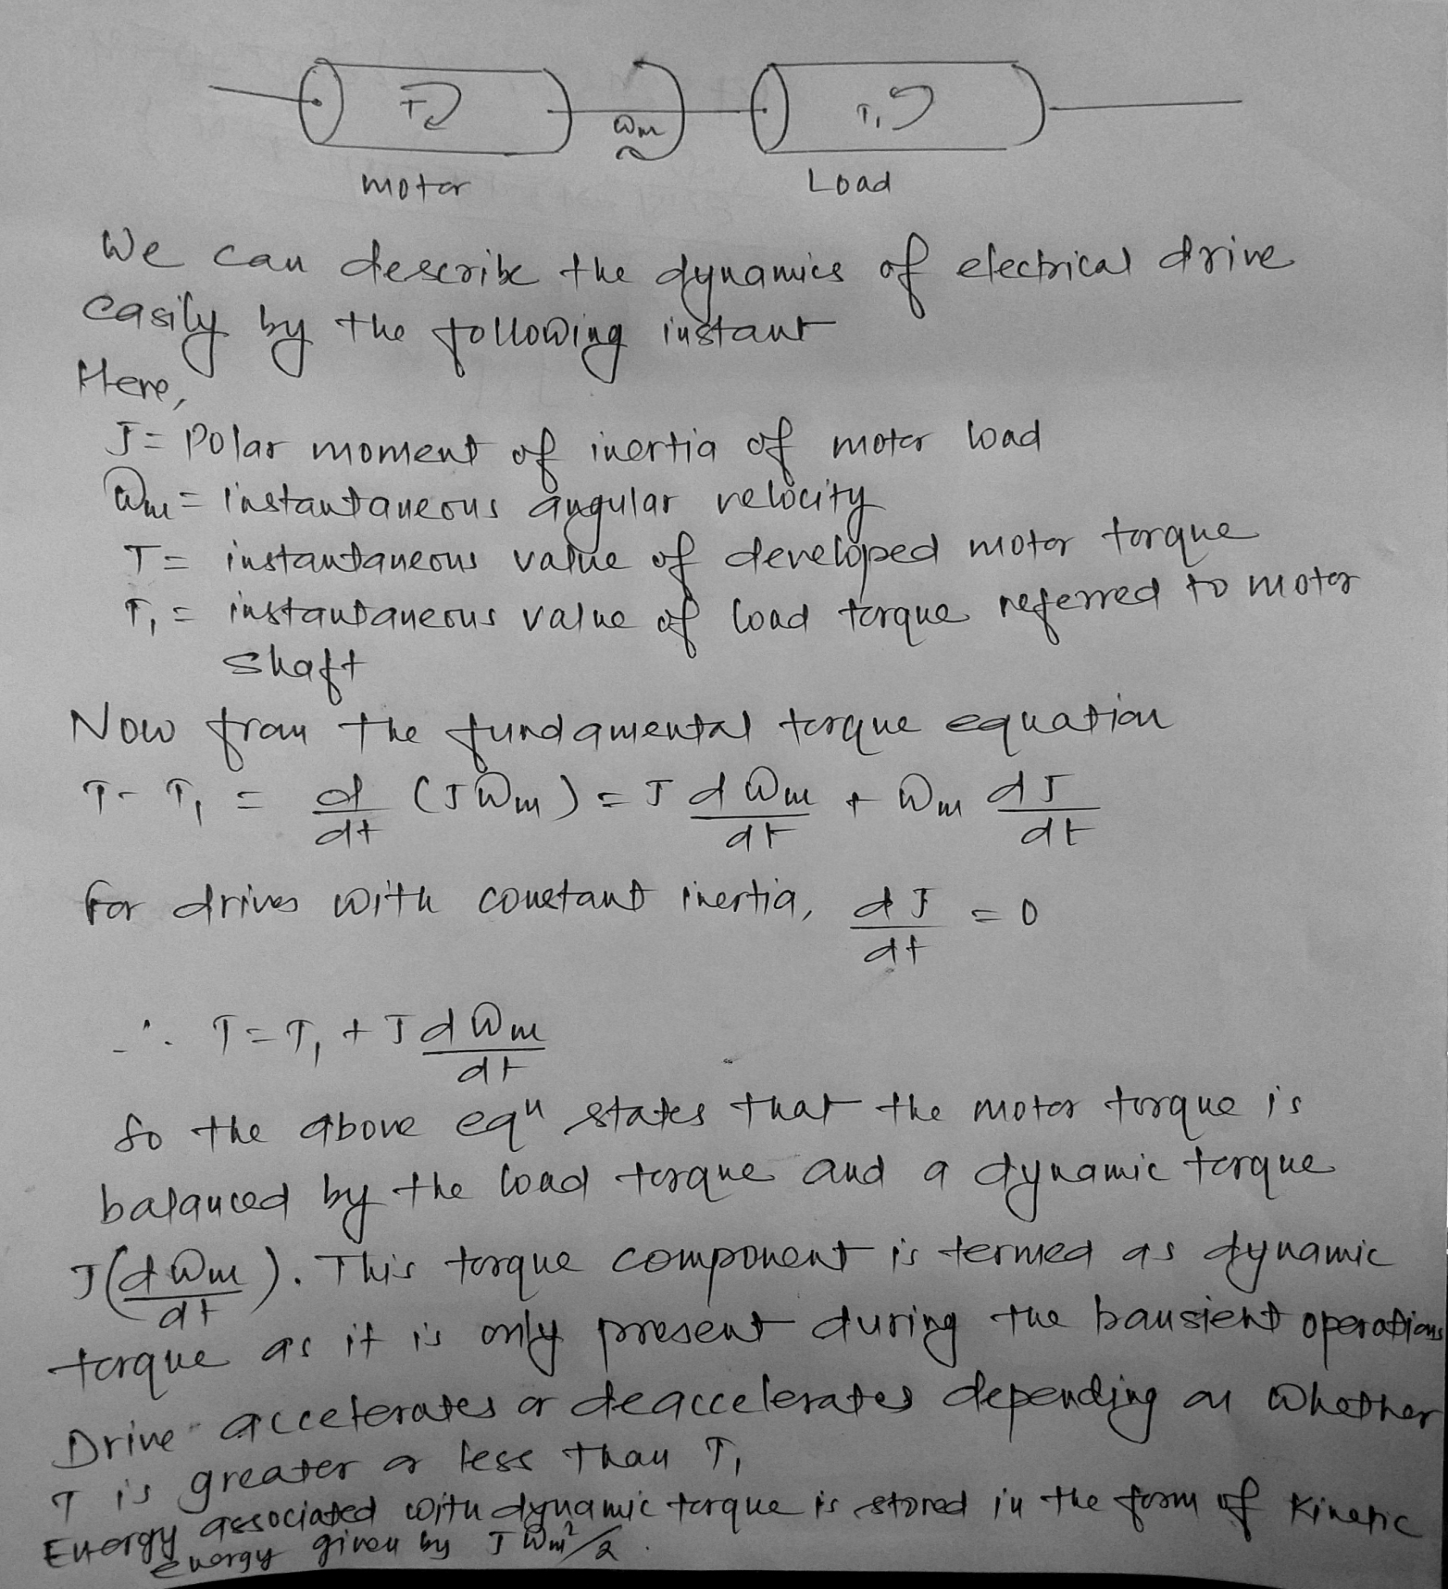 T
ωm
T₁
motor
Load
We can describe the dynamics of electrical drive
easily by the following instant
Here,
J = Polar moment of inertia of motor load
ωm = instantaneous angular velocity
T = instantaneous value of developed motor torque
T₁ = instantaneous value of load torque referred to motor
shaft
Now from the fundamental torque equation
T - T₁ = d/dt (Jωm) = J dωm/dt + ωm dJ/dt
for drives with constant inertia, dJ/dt = 0
∴ T = T₁ + J dωm/dt
So the above eqn states that the motor torque is
balanced by the load torque and a dynamic torque
J(dωm/dt). This torque component is termed as dynamic
torque as it is only present during the transient operations
Drive accelerates or deaccelerates depending on whether
T is greater or less than T₁
Energy associated with dynamic torque is stored in the form of kinetic
energy given by Jωm²/2.